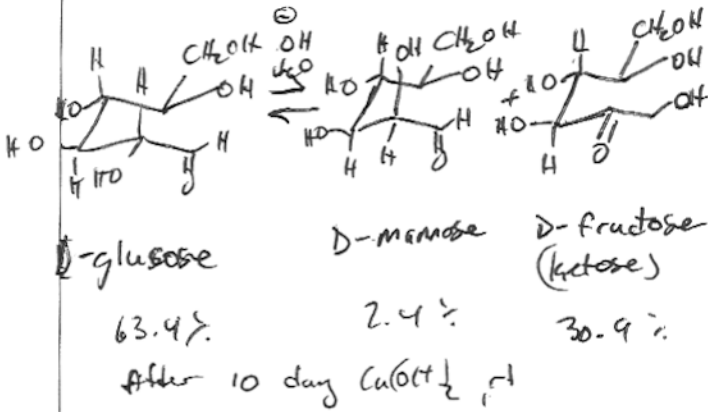 ⊖
H CH₂OH OH
H OH H₂O
HO
HO H
H HO O
H OH CH₂OH
HO OH
HO H
H H O
+
H CH₂OH
HO OH
HO OH
H O
D-glusose D-mannose D-fructose
(ketose)
63.4% 2.4% 30.9%
After 10 day Ca(OH)₂, rt